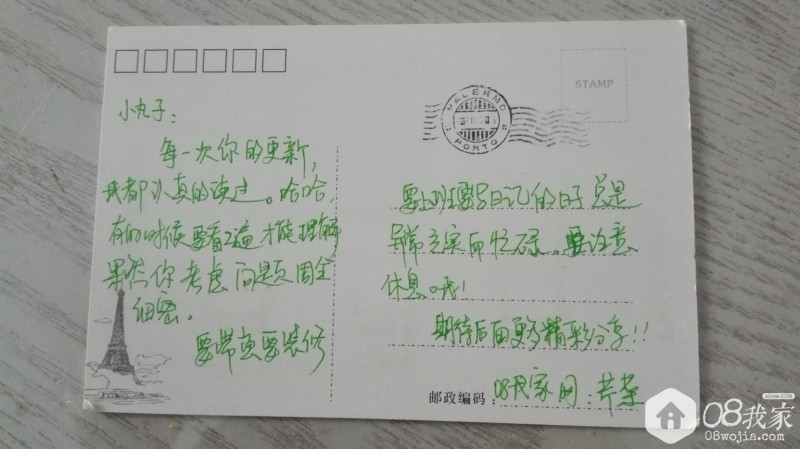 小丸子：
每一次你的更新，
我都认真的读过。哈哈，
有的时候要看2遍才能理解
果然你考虑问题周全
细密。
要带货要装修
STAMP
PALERMO
PONTO
要上班要写日记的日子总是
异常充实而忙碌。要注意
休息哦！
期待后面更多精彩分享！！
邮政编码：
08我家网：芹菜
08我家
08wojia.com